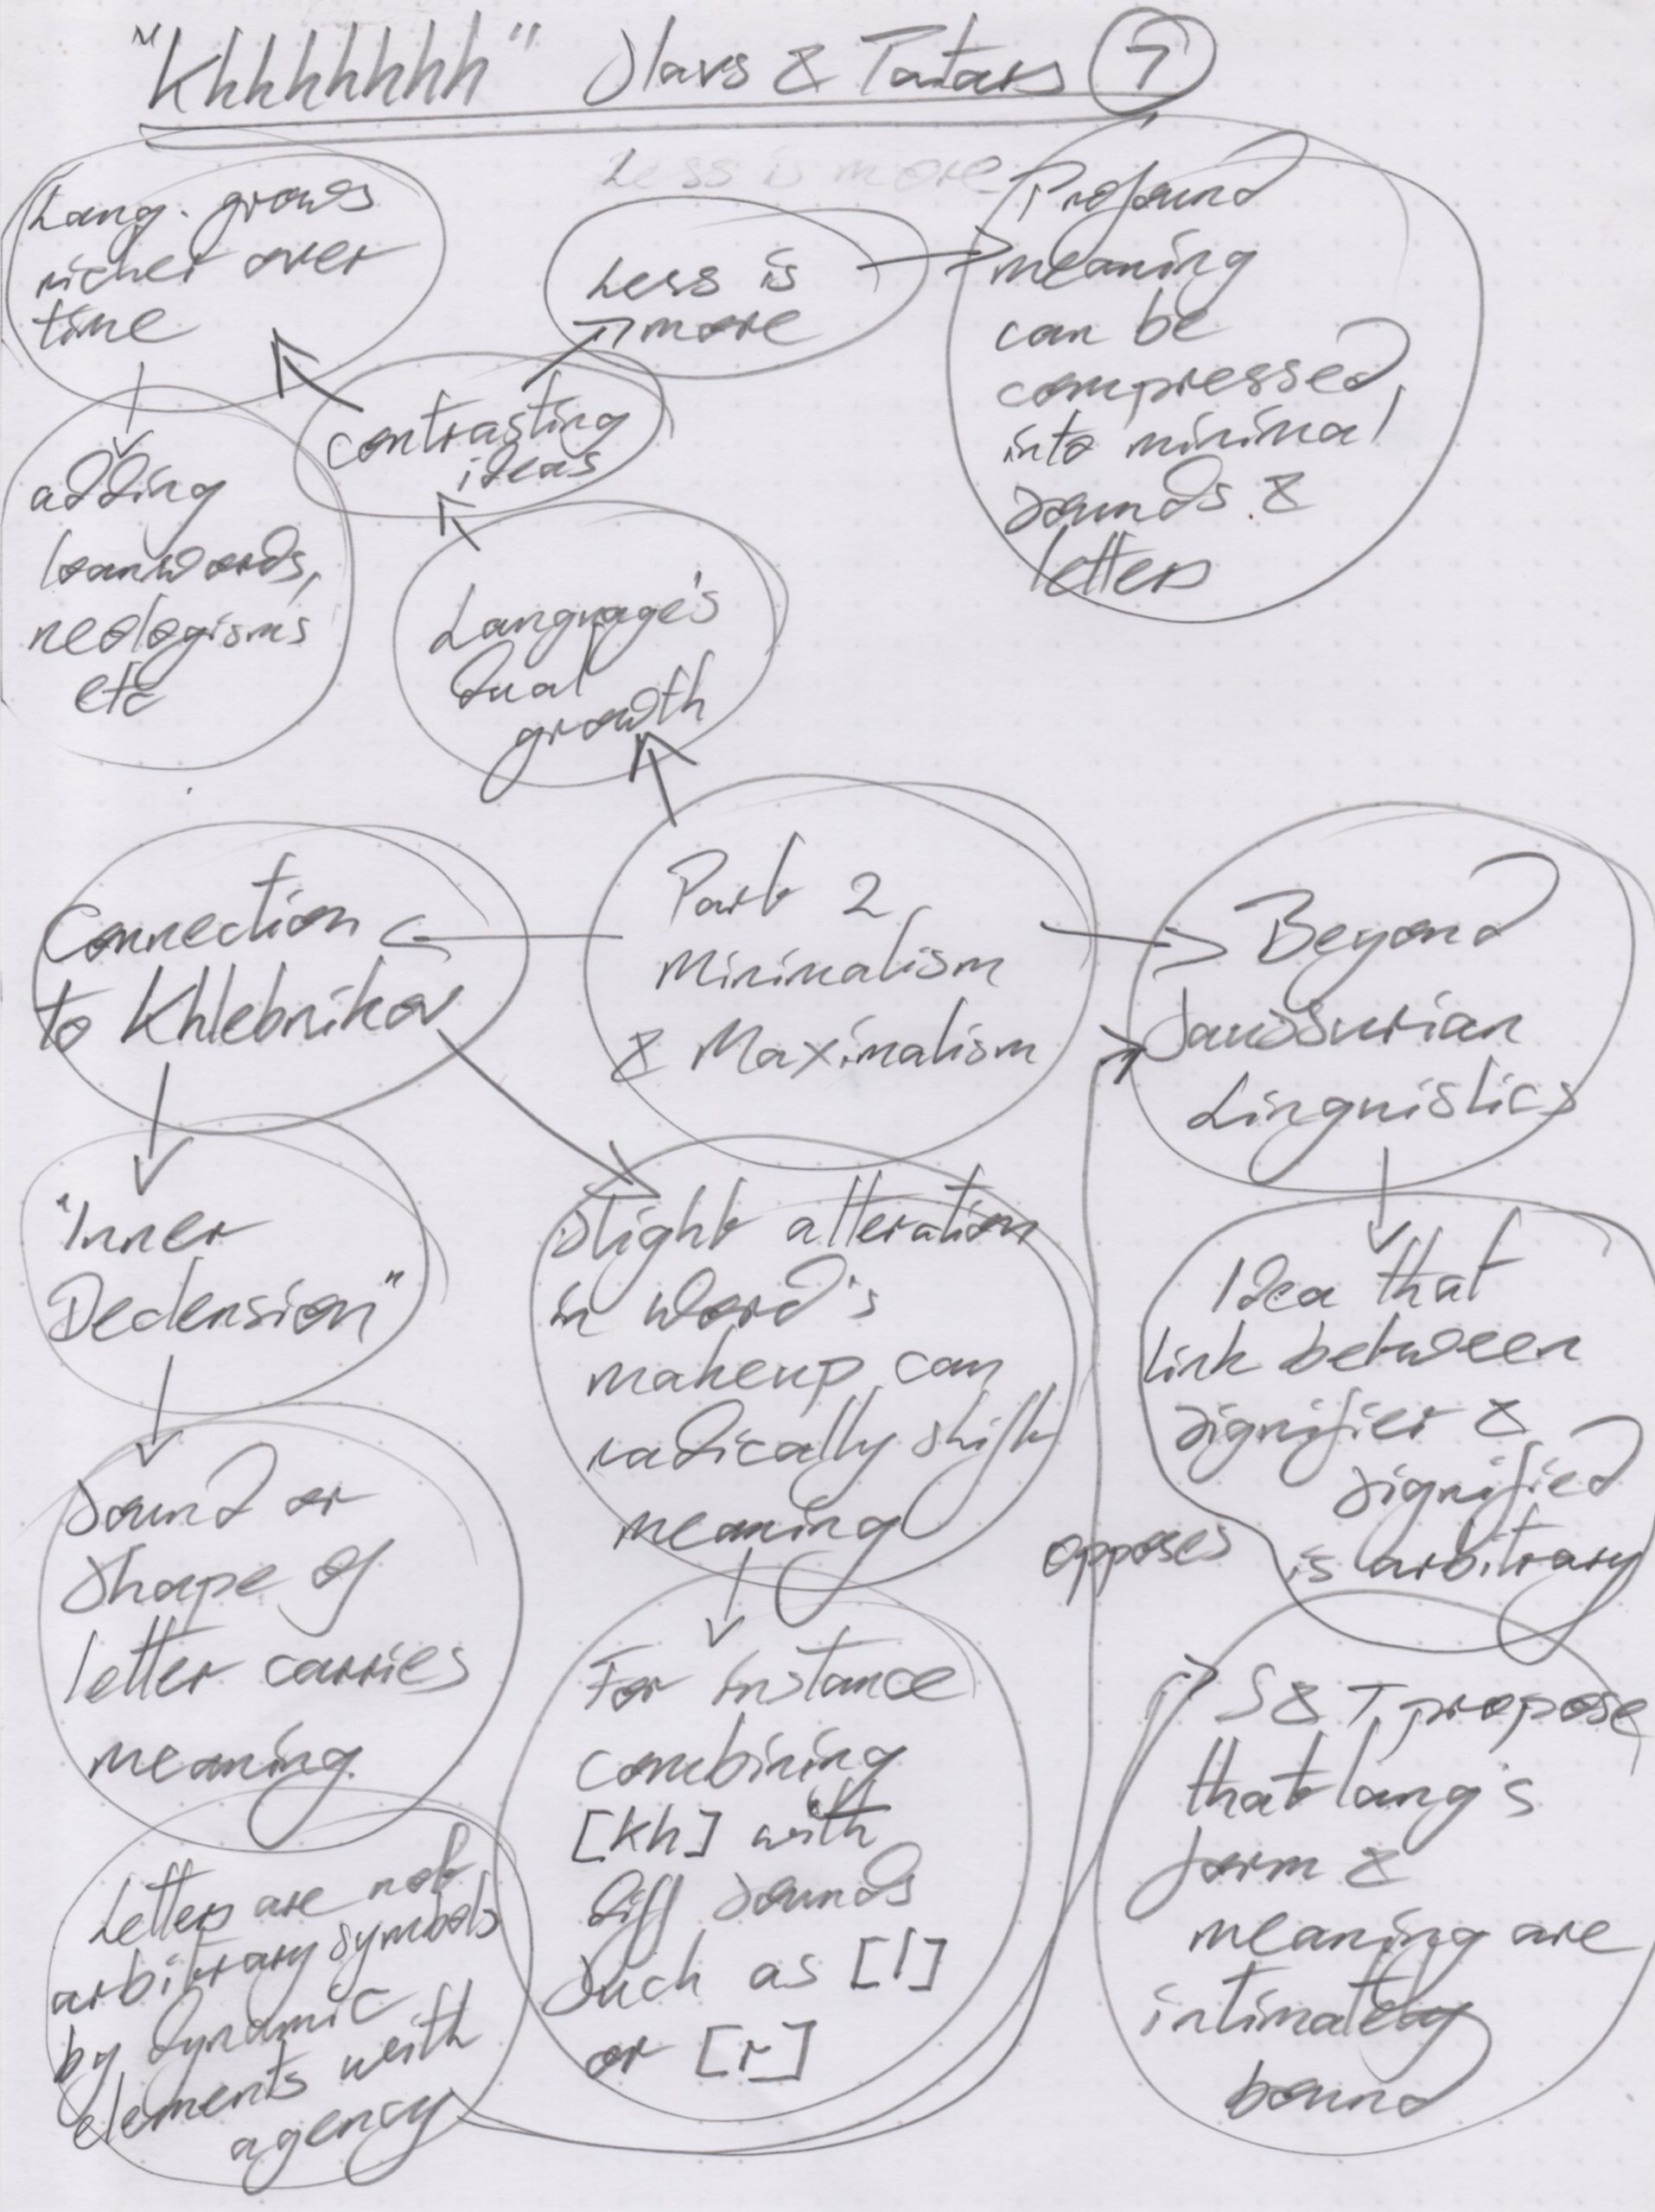 "Khhhhhhh" Slavs & Tatars 7
Less is more
Lang. grows
richer over
time
Less is
more
Profound
meaning
can be
compressed
into minimal
sounds &
letters
contrasting
ideas
adding
loanwords,
neologisms
etc
Language's
dual
growth
Part 2
Minimalism
& Maximalism
Connection
to Khlebnikov
Beyond
Saussurian
Linguistics
"Inner
Declension"
Slight alteration
in word's
makeup can
radically shift
meaning
Idea that
link between
signifier &
signified
is arbitrary
Sound or
shape of
letter carries
meaning
opposes
For instance
combining
[kh] with
diff sounds
such as [l]
or [r]
S & T propose
that lang's
form &
meaning are
intimately
bound
Letters are not
arbitrary symbols
by dynamic
elements with
agency